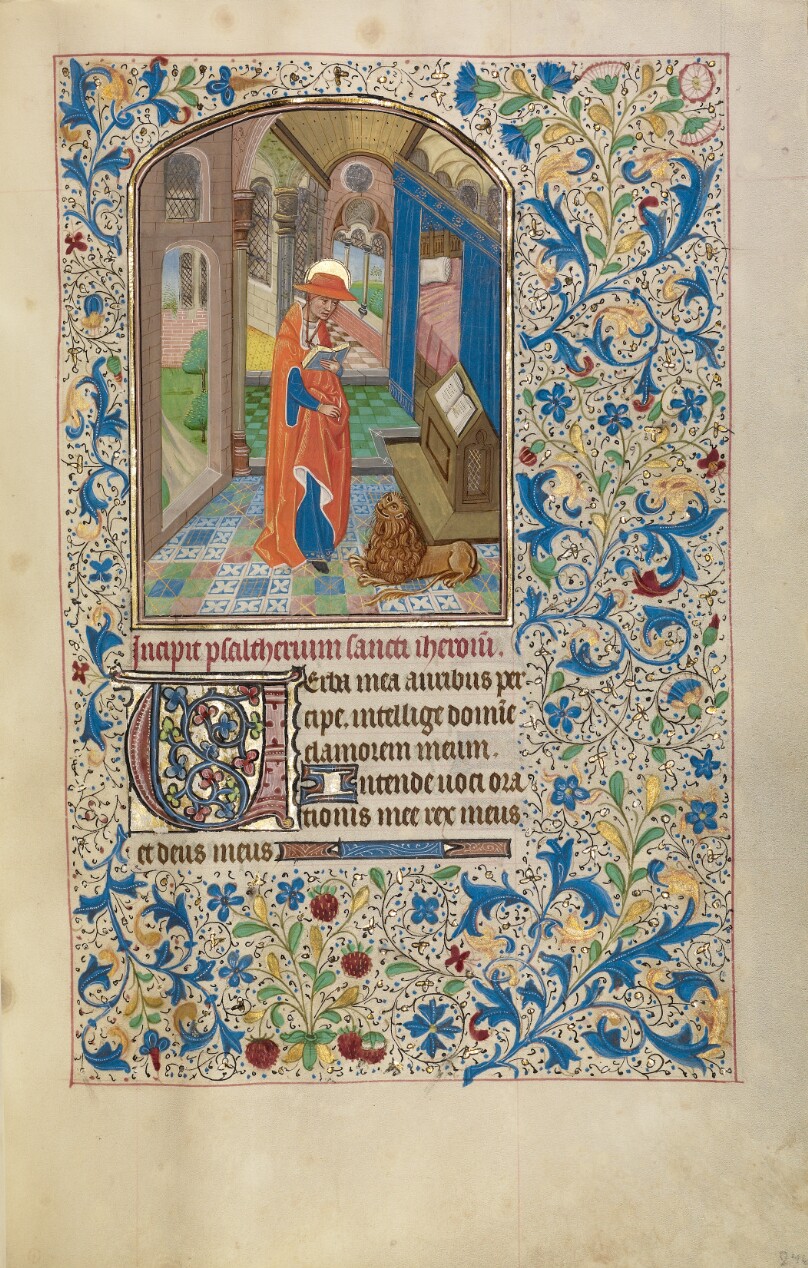 Incipit psaltherium sancti iheroiῑ.
Verba mea auribus per
cipe. intellige domīe
clamorem meum.
Intende uoci ora
tionis mee rex meus
et deus meus